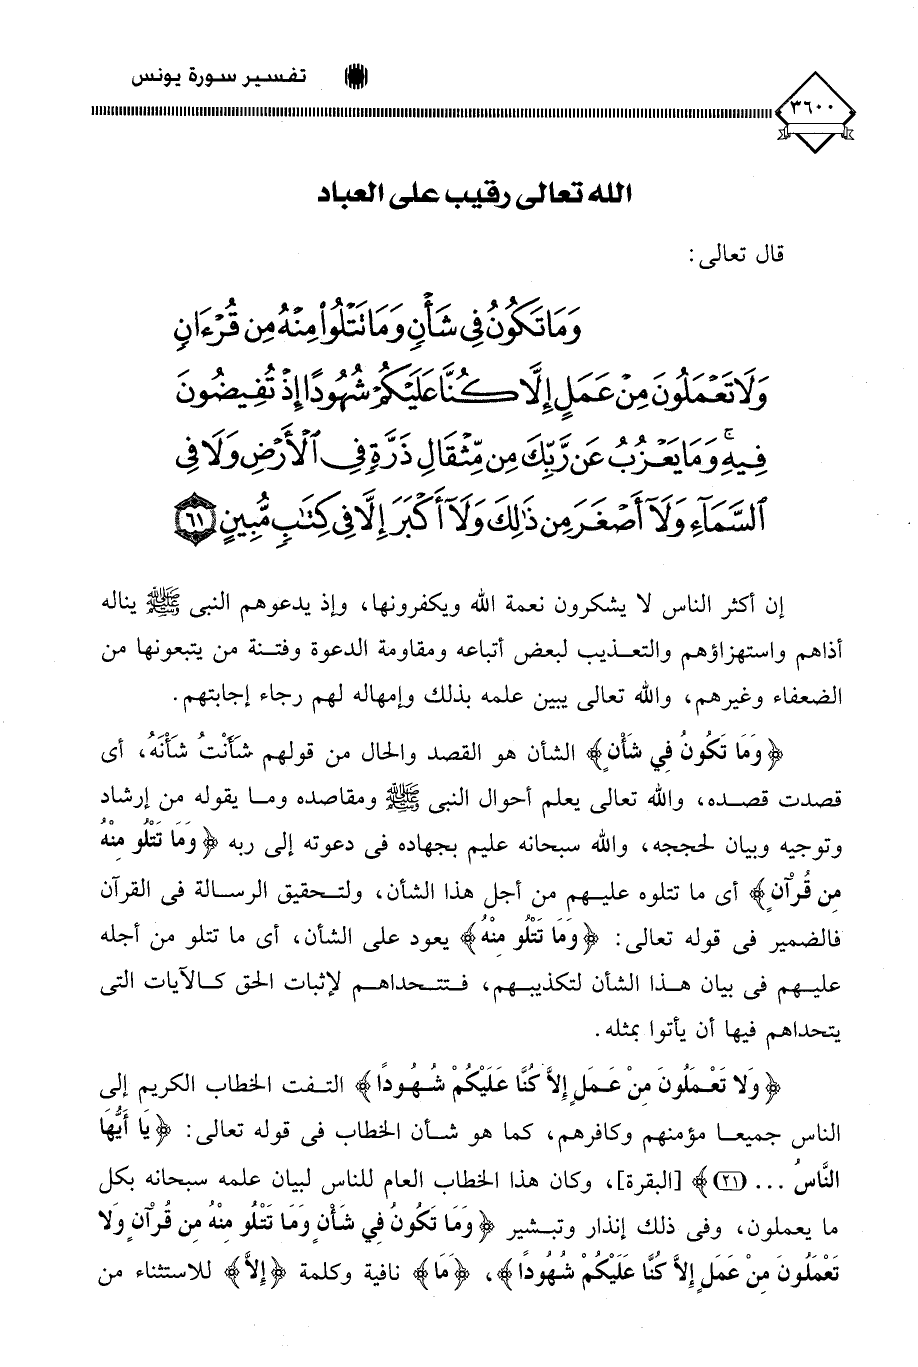 تفسير سورة يونس
٣٦٠٠
الله تعالى رقيب على العباد
قال تعالى:
وَمَا تَكُونُ فِي شَأْنٍ وَمَا تَتْلُوا۟ مِنْهُ مِن قُرْءَانٍ
وَلَا تَعْمَلُونَ مِنْ عَمَلٍ إِلَّا كُنَّا عَلَيْكُمْ شُهُودًا إِذْ تُفِيضُونَ
فِيهِ ۚ وَمَا يَعْزُبُ عَن رَّبِّكَ مِن مِّثْقَالِ ذَرَّةٍ فِي ٱلْأَرْضِ وَلَا فِي
ٱلسَّمَآءِ وَلَآ أَصْغَرَ مِن ذَٰلِكَ وَلَآ أَكْبَرَ إِلَّا فِي كِتَٰبٍ مُّبِينٍ ٦١
إن أكثر الناس لا يشكرون نعمة الله ويكفرونها، وإذ يدعوهم النبى ﷺ يناله
أذاهم واستهزاؤهم والتعذيب لبعض أتباعه ومقاومة الدعوة وفتنة من يتبعونها من
الضعفاء وغيرهم، والله تعالى يبين علمه بذلك وإمهاله لهم رجاء إجابتهم.
﴿وَمَا تَكُونُ فِي شَأْنٍ﴾ الشأن هو القصد والحال من قولهم شَأَنْتُ شَأْنَهُ، أى
قصدت قصده، والله تعالى يعلم أحوال النبى ﷺ ومقاصده وما يقوله من إرشاد
وتوجيه وبيان لحججه، والله سبحانه عليم بجهاده فى دعوته إلى ربه ﴿وَمَا تَتْلُو مِنْهُ
مِن قُرْآنٍ﴾ أى ما تتلوه عليهم من أجل هذا الشأن، ولتحقيق الرسالة فى القرآن
فالضمير فى قوله تعالى: ﴿وَمَا تَتْلُو مِنْهُ﴾ يعود على الشأن، أى ما تتلو من أجله
عليهم فى بيان هذا الشأن لتكذيبهم، فتتحداهم لإثبات الحق كالآيات التى
يتحداهم فيها أن يأتوا بمثله.
﴿وَلا تَعْمَلُونَ مِنْ عَمَلٍ إِلاَّ كُنَّا عَلَيْكُمْ شُهُودًا﴾ التفت الخطاب الكريم إلى
الناس جميعا مؤمنهم وكافرهم، كما هو شأن الخطاب فى قوله تعالى: ﴿يَا أَيُّهَا
النَّاسُ ... (٢١)﴾ [البقرة]، وكان هذا الخطاب العام للناس لبيان علمه سبحانه بكل
ما يعملون، وفى ذلك إنذار وتبشير ﴿وَمَا تَكُونُ فِي شَأْنٍ وَمَا تَتْلُو مِنْهُ مِن قُرْآنٍ وَلا
تَعْمَلُونَ مِنْ عَمَلٍ إِلاَّ كُنَّا عَلَيْكُمْ شُهُودًا﴾، ﴿مَا﴾ نافية وكلمة ﴿إِلاَّ﴾ للاستثناء من